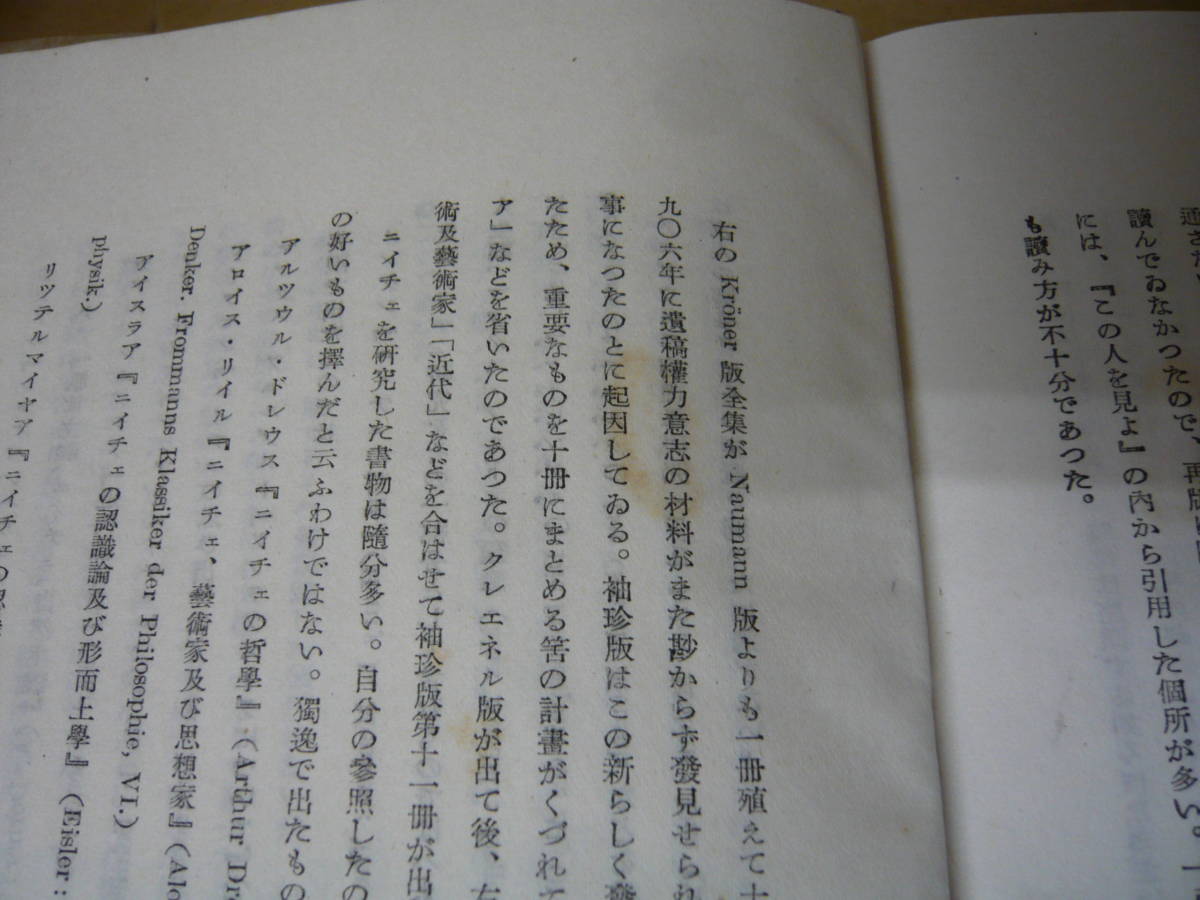 讀んでゐなかつたので、再版
には、『この人を見よ』の內から引用した個所が多い。
も讀み方が不十分であつた。
右の Kröner 版全集が Naumann 版よりも一冊殖えて十
九〇六年に遺稿權力意志の材料がまた尠からず發見せられ
事になつたのとに起因してゐる。袖珍版はこの新らしく發
たため、重要なものを十冊にまとめる筈の計畫がくづれて
ア」などを省いたのであつた。クレエネル版が出て後、左
術及藝術家」「近代」などを合はせて袖珍版第十一冊が出
ニイチェを研究した書物は隨分多い。自分の參照したの
の好いものを擇んだと云ふわけではない。獨逸で出たもの
アルツウル・ドレウス『ニイチェの哲學』(Arthur Dr
アロイス・リイル『ニイチェ、藝術家及び思想家』(Alo
Denker. Frommanns Klassiker der Philosophie, VI.)
アイスラア『ニイチェの認識論及び形而上學』(Eisler:
physik.)
リツテルマイヤア『ニイチェの認